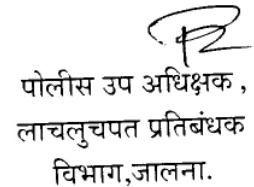 पोलीस उप अधिक्षक ,
लाचलुचपत प्रतिबंधक
विभाग,जालना.